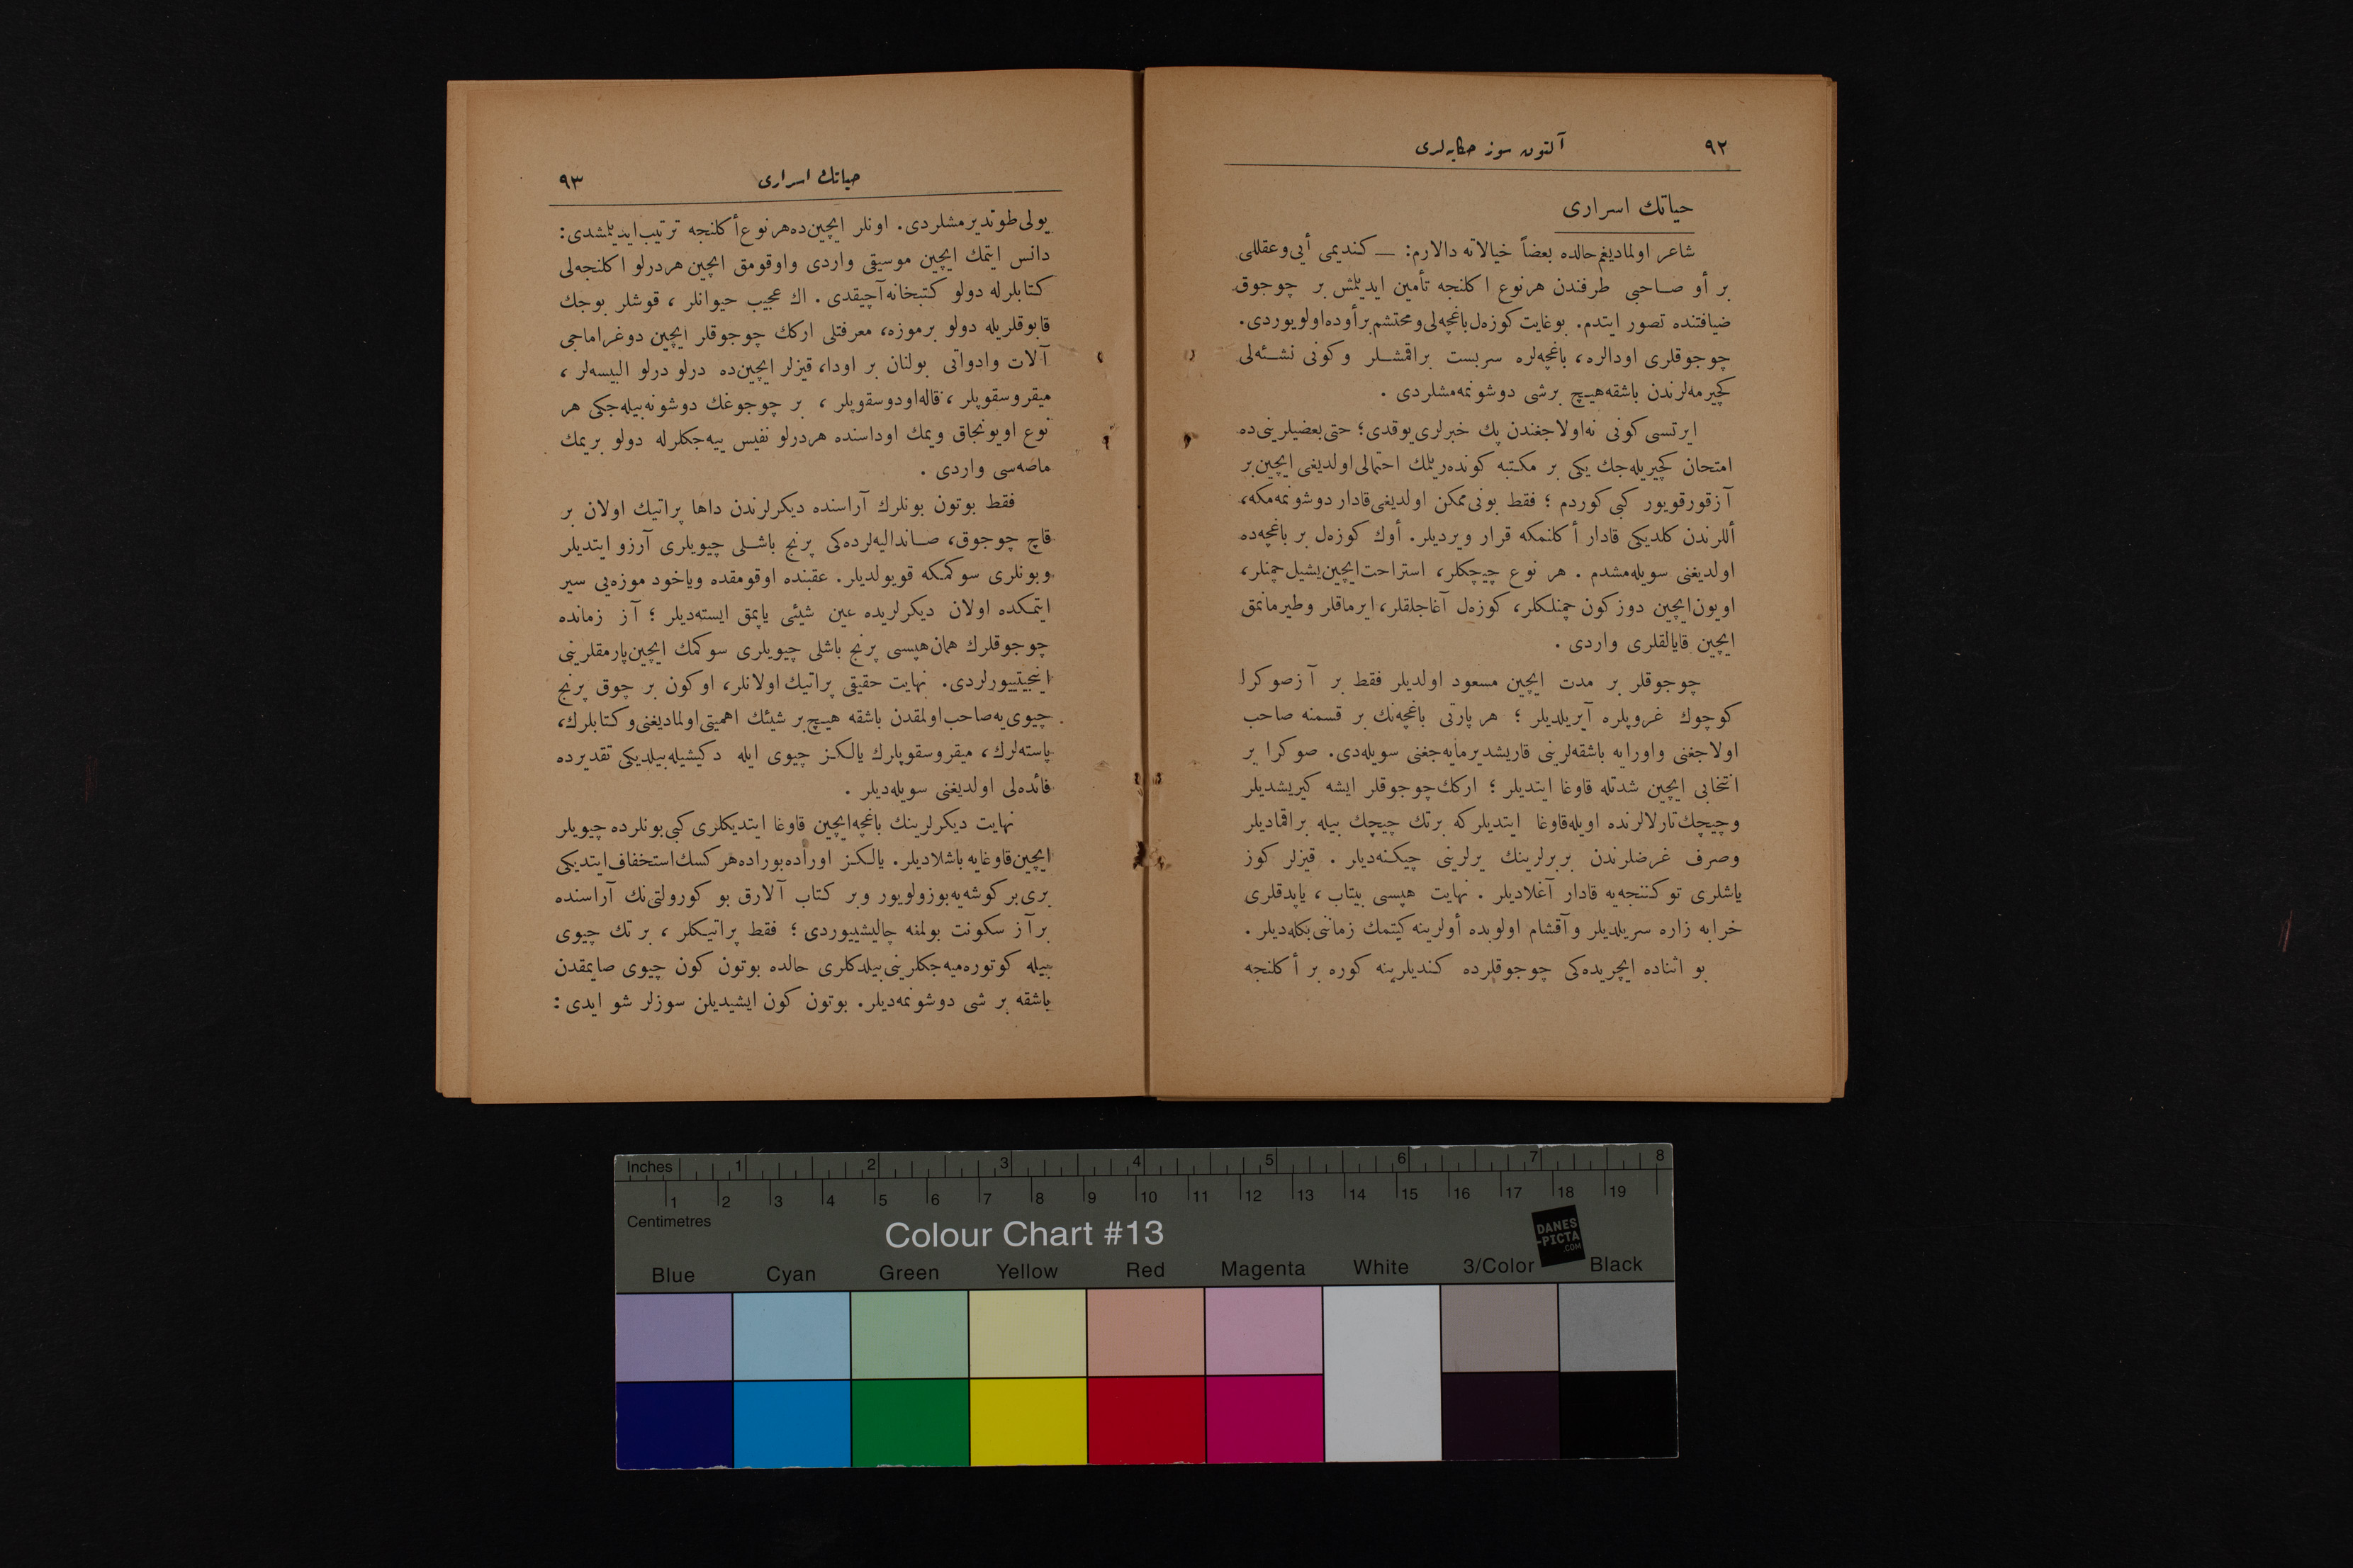 ٩٢
آلتون سوز حكايه‌لرى
حياتك اسرارى
شاعر اولماديغم حالده بعضاً خيالاته دالارم: — كنديمى أيى وعقللى
بر أو صاحبى طرفندن هر نوع اكلنجه تأمين ايديلمش بر چوجوق
ضيافتنده تصور ايتدم. بو غايت كوزه‌ل باغچه‌لى و محتشم بر أوده اولويوردى.
چوجوقلرى اودالره، باغچه‌لره سربست براقمشلر و كونى نشئه‌لى
كچيرمه‌لرندن باشقه هيچ برشى دوشونمه‌مشلردى .
ايرتسى كونى نه اولاجغندن پك خبرلرى يوقدى؛ حتى بعضيلرينى ده
امتحان كچيريله‌جك يكى بر مكتبه كونده‌ريلمك احتمالى اولديغى ايچين بر
آز قورقويور كبى كوردم ؛ فقط بونى ممكن اولديغى قادار دوشونمه‌مكه،
أللرندن كلديكى قادار أكلنمكه قرار ويرديلر. أوك كوزه‌ل بر باغچه‌ده
اولديغنى سويله‌مشدم . هر نوع چيچكلر، استراحت ايچين يشيل چمنلر،
اويون ايچين دوزكون چمنلكلر، كوزه‌ل آغاجلقلر، ايرماقلر وطيرمانمق
ايچين قايالقلرى واردى .
چوجوقلر بر مدت ايچين مسعود اولديلر فقط بر آز صوكرا
كوچوك غروپلره آيريلديلر ؛ هر پارتى باغچه‌نك بر قسمنه صاحب
اولاجغنى واورايه باشقه‌لرينى قاريشديرمايه‌جغنى سويله‌دى. صوكرا ير
انتخابى ايچين شدتله قاوغا ايتديلر ؛ اركك چوجوقلر ايشه كيريشديلر
وچيچك تارلالرنده اويله قاوغا ايتديلر كه بر تك چيچك بيله براقماديلر
وصرف غرضلرندن بربرلرينك يرلرينى چيكنه‌ديلر . قيزلر كوز
ياشلرى توكننجه‌يه قادار آغلاديلر . نهايت هپسى بيتاب ، ياپدقلرى
خرابه زاره سريلديلر و آقشام اولوبده أولرينه كيتمك زماننى بكله‌ديلر .
بو اثناده ايچريده‌كى چوجوقلرده كنديلرينه كوره بر أكلنجه
حياتك اسرارى
٩٣
يولى طوتديرمشلردى. اونلر ايچين ده هر نوع أكلنجه ترتيب ايديلمشدى:
دانس ايتمك ايچين موسيقى واردى واوقومق ايچين هر درلو اكلنجه‌لى
كتابلرله دولو كتبخانه آچيقدى. اك عجيب حيوانلر ، قوشلر بوجك
قابوقلريله دولو بر موزه، معرفتلى اركك چوجوقلر ايچين دوغراماجى
آلات وادواتى بولنان بر اودا، قيزلر ايچين ده درلو درلو البيسه‌لر ،
ميقروسقوپلر ، قاله‌اودوسقوپلر ، بر چوجوغك دوشونه‌بيله‌جكى هر
نوع اويونجاق ويمك اوداسنده هر درلو نفيس ييه‌جكلرله دولو بر يمك
ماصه‌سى واردى .
فقط بوتون بونلرك آراسنده ديكرلرندن داها پراتيك اولان بر
قاچ چوجوق، صانداليه‌لرده‌كى پرنج باشلى چيويلرى آرزو ايتديلر
وبونلرى سوكمكه قويولديلر. عقبنده اوقومقده وياخود موزه‌يى سير
ايتمكده اولان ديكرلريده عين شيئى ياپمق ايسته‌ديلر ؛ آز زمانده
چوجوقلرك همان هپسى پرنج باشلى چيويلرى سوكمك ايچين پارمقلرينى
اينجيتييورلردى. نهايت حقيقى پراتيك اولانلر، او كون بر چوق پرنج
چيوى‌يه صاحب اولمقدن باشقه هيچ بر شيئك اهميتى اولماديغنى و كتابلرك،
پاسته‌لرك، ميقروسقوپلرك يالكز چيوى ايله دكيشيله‌بيلديكى تقديرده
فائده‌لى اولديغنى سويله‌ديلر .
نهايت ديكرلرينك باغچه ايچين قاوغا ايتديكلرى كبى بونلرده چيويلر
ايچين قاوغايه باشلاديلر. يالكز اوراده بوراده هركسك استخفاف ايتديكى
برى بر كوشه‌يه بوزولويور وبر كتاب آلارق بو كورولتى‌نك آراسنده
بر آز سكونت بولمغه چاليشييوردى ؛ فقط پراتيكلر ، بر تك چيوى
بيله كوتوره‌ميه‌جكلرينى بيلدكلرى حالده بوتون كون چيوى صايمقدن
باشقه بر شى دوشونمه‌ديلر. بوتون كون ايشيديلن سوزلر شو ايدى :
Inches 1 2 3 4 5 6 7 8
1 2 3 4 5 6 7 8 9 10 11 12 13 14 15 16 17 18 19
Centimetres
Colour Chart #13
DANES
-PICTA
.COM
Blue Cyan Green Yellow Red Magenta White 3/Color Black